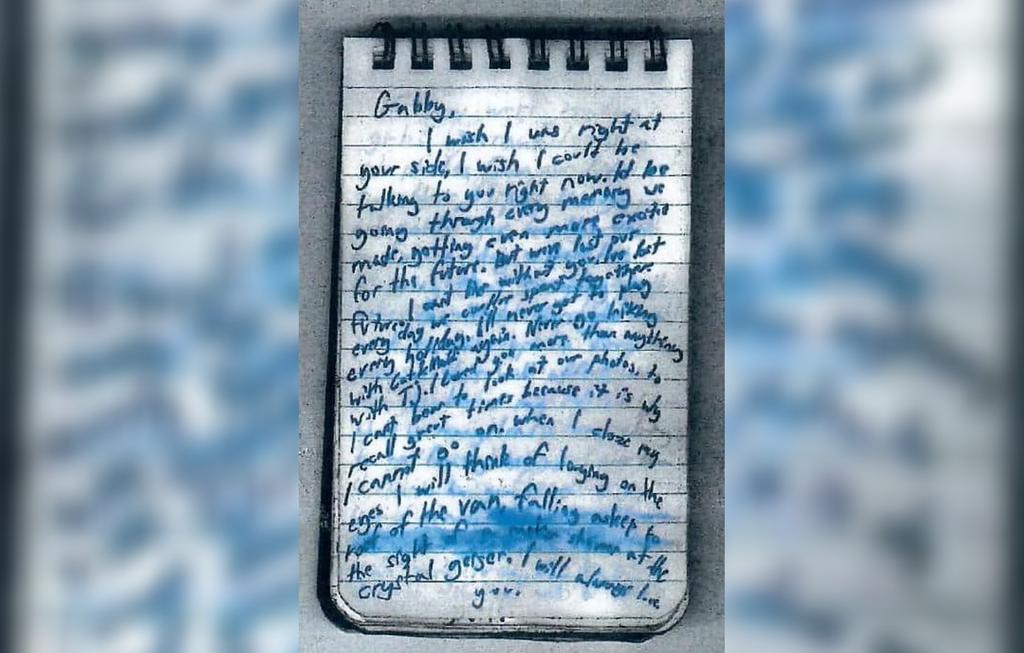 Gabby,
I wish I was right at
your side, I wish I could be
talking to you right now. Id be
going through every memory we
made, getting even more excited
for the future. But weve lost our
future. I cant live without you. Ive lost
every day we couldve spent together
every holiday. Ill never get to play
with again. Never go hiking
with TJ. I loved you more than anything
I cant bear to look at our photos, to
recall great times because it is why
I cannot go on. when I close my
eyes I will think of laughing on the
roof of the van, falling asleep to
the sight of at the
crystal geiser. I will always love
you.